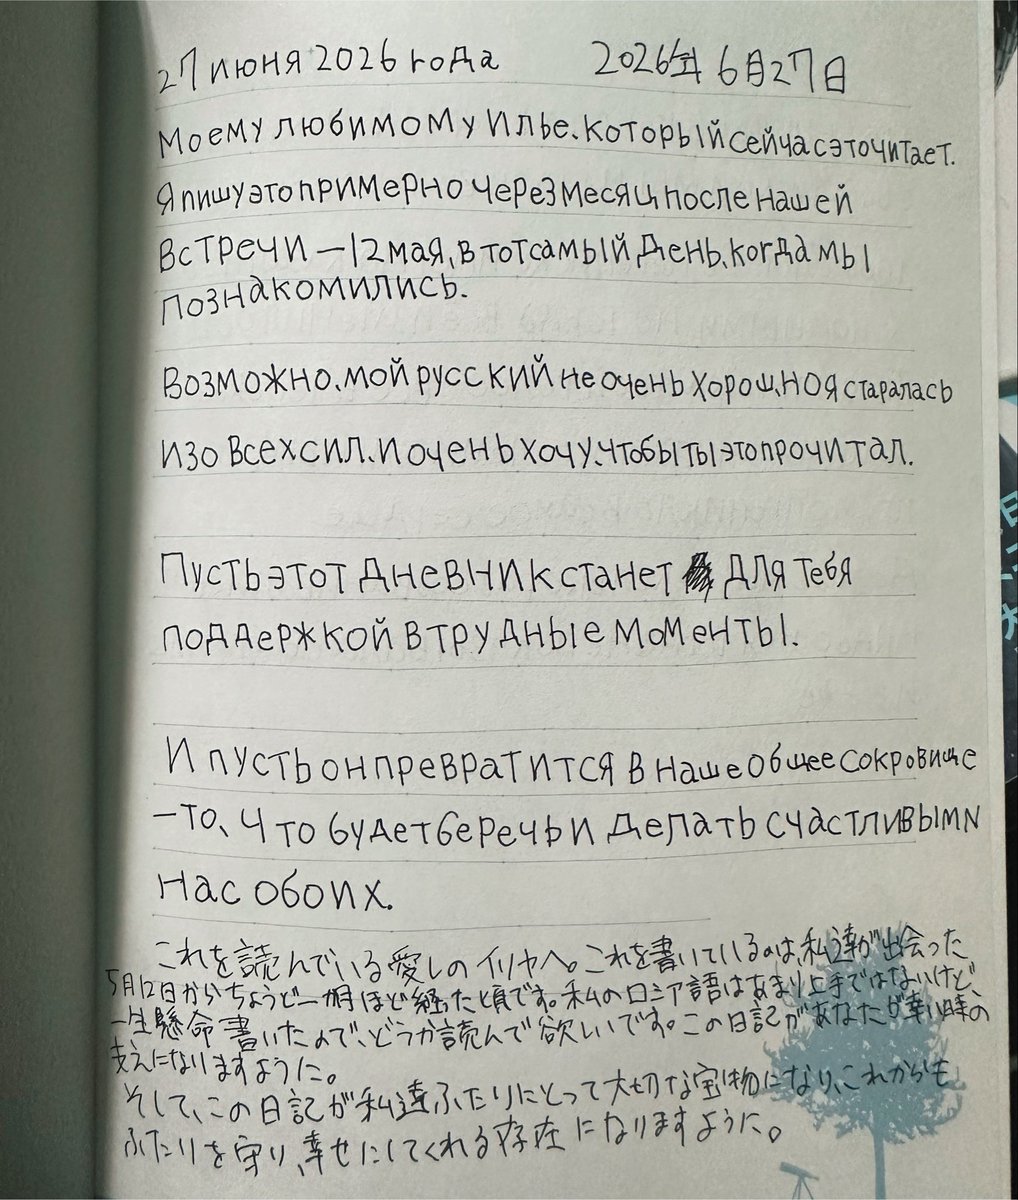 27 июня 2026 года 2026年 6月27日
Моему любимому Илье、который сейчас это читает.
Я пишу это примерно через месяц после нашей
встречи —12 мая、в тот самый день、когда мы
познакомились.
Возможно、мой русский не очень хорош、но я старалась
изо всех сил、и очень хочу、чтобы ты это прочитал.
Пусть этот дневник станет для тебя
поддержкой в трудные моменты.
И пусть он превратится в наше общее сокровище
—то、что будет беречь и делать счастливыми
нас обоих.
これを読んでいる愛しのイリヤへ。これを書いているのは、私達が出会った
5月12日からちょうど一か月ほど経った頃です。私のロシア語はあまり上手ではないけど、
一生懸命書いたので、どうか読んで欲しいです。この日記があなたが辛い時の
支えになりますように。
そして、この日記が私達ふたりにとって大切な宝物になり、これからも
ふたりを守り、幸せにしてくれる存在になりますように。